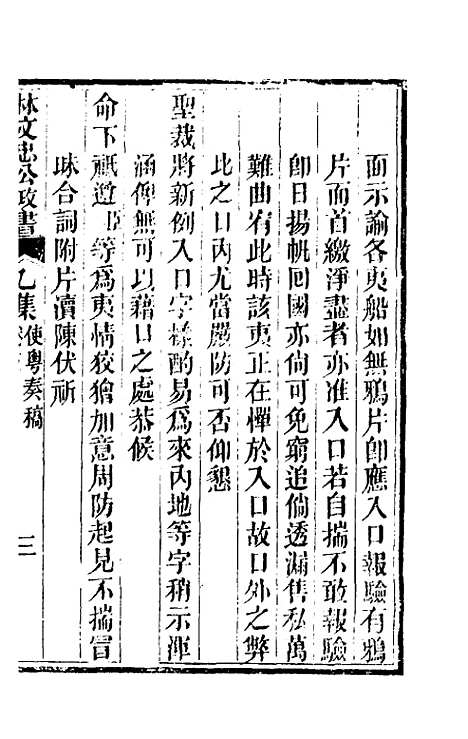 面示諭各夷船如無鴉片卽應入口報驗有鴉
片而首繳淨盡者亦准入口若自揣不敢報驗
卽日揚帆回國亦尙可免窮追倘透漏售私萬
難曲宥此時該夷正在憚於入口故口外之弊
比之口內尤當嚴防可否仰懇
聖裁將新例入口字樣酌易爲來內地等字稍示渾
涵俾無可以藉口之處恭候
命下祇遵臣等爲夷情狡獪加意周防起見不揣冒
昧合詞附片瀆陳伏祈
林文忠公政書 乙集 使粵奏稿 三